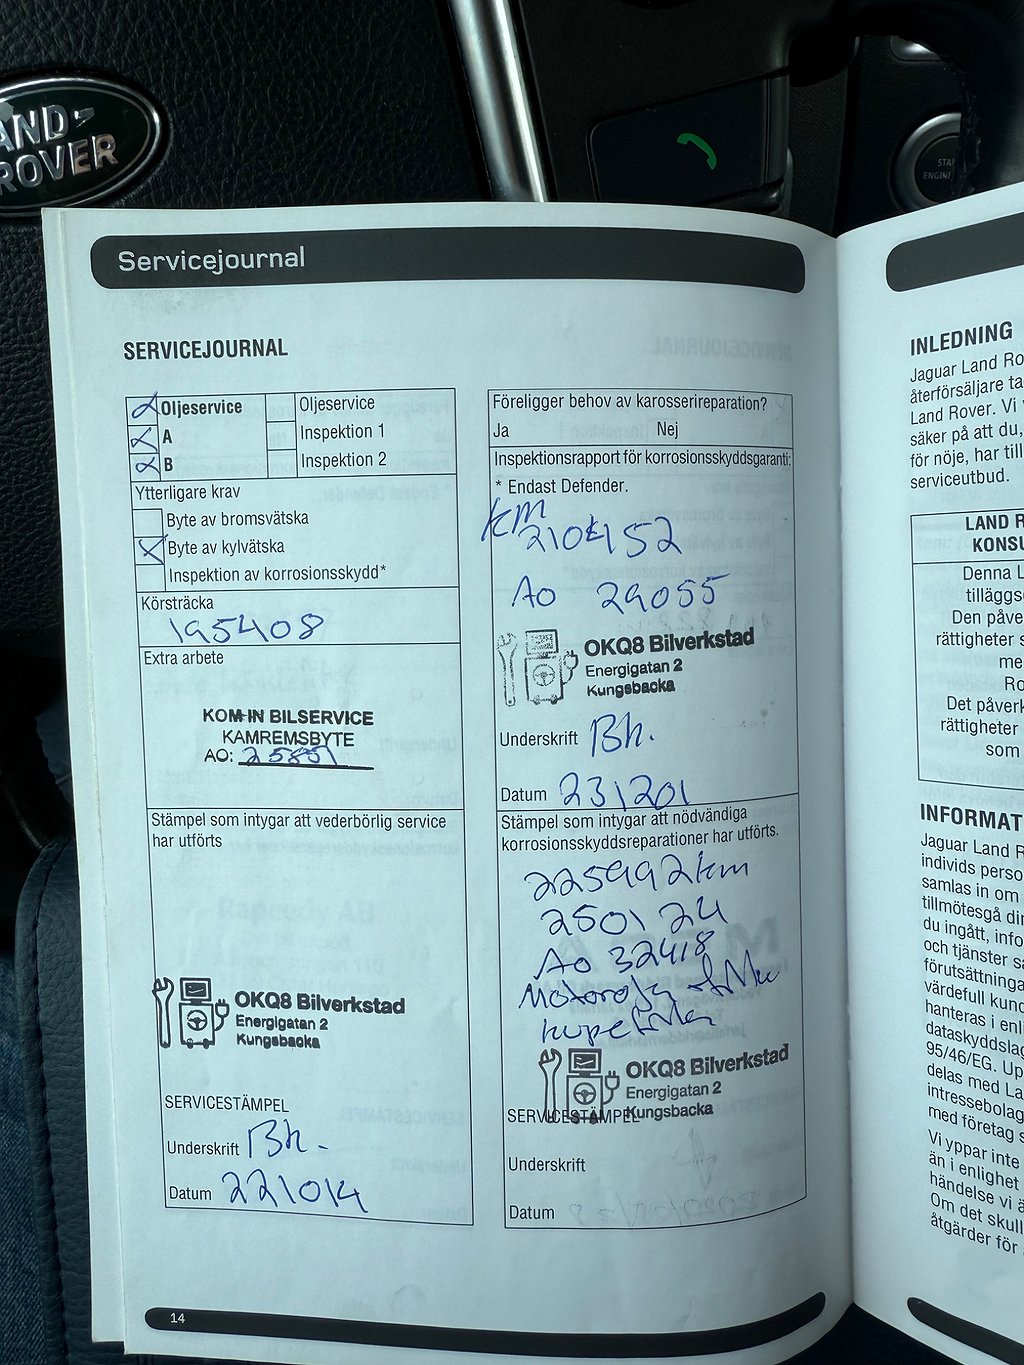 LAND
ROVER
START
ENGINE
Servicejournal
SERVICEJOURNAL
Oljeservice
A
B
Oljeservice
Inspektion 1
Inspektion 2
Ytterligare krav
Byte av bromsvätska
Byte av kylvätska
Inspektion av korrosionsskydd*
Körsträcka
195408
Extra arbete
KOM-IN BILSERVICE
KAMREMSBYTE
AO: 25851
Stämpel som intygar att vederbörlig service
har utförts
OKQ8 Bilverkstad
Energigatan 2
Kungsbacka
SERVICESTÄMPEL
Underskrift Bh.
Datum 221014
Föreligger behov av karosserireparation?
Ja Nej
Inspektionsrapport för korrosionsskyddsgaranti:
* Endast Defender.
km
210452
AO 29055
OKQ8 Bilverkstad
Energigatan 2
Kungsbacka
Underskrift Bh.
Datum 231201
Stämpel som intygar att nödvändiga
korrosionsskyddsreparationer har utförts.
225992km
250124
AO 32418
Motorolja
OKQ8 Bilverkstad
Energigatan 2
Kungsbacka
SERVICESTÄMPEL
Underskrift
Datum
14
INLEDNING
Jaguar Land Ro
återförsäljare ta
Land Rover. Vi v
säker på att du,
för nöje, har till
serviceutbud.
LAND R
KONSU
Denna L
tilläggs
Den påve
rättigheter s
me
Ro
Det påverk
rättigheter
som
INFORMAT
Jaguar Land R
individs perso
samlas in om
tillmötesgå din
du ingått, info
och tjänster sa
förutsättninga
värdefull kund
hanteras i enli
dataskyddslag
95/46/EG. Up
delas med La
intressebolag
med företag s
Vi yppar inte
än i enlighet
händelse vi ä
Om det skull
åtgärder för